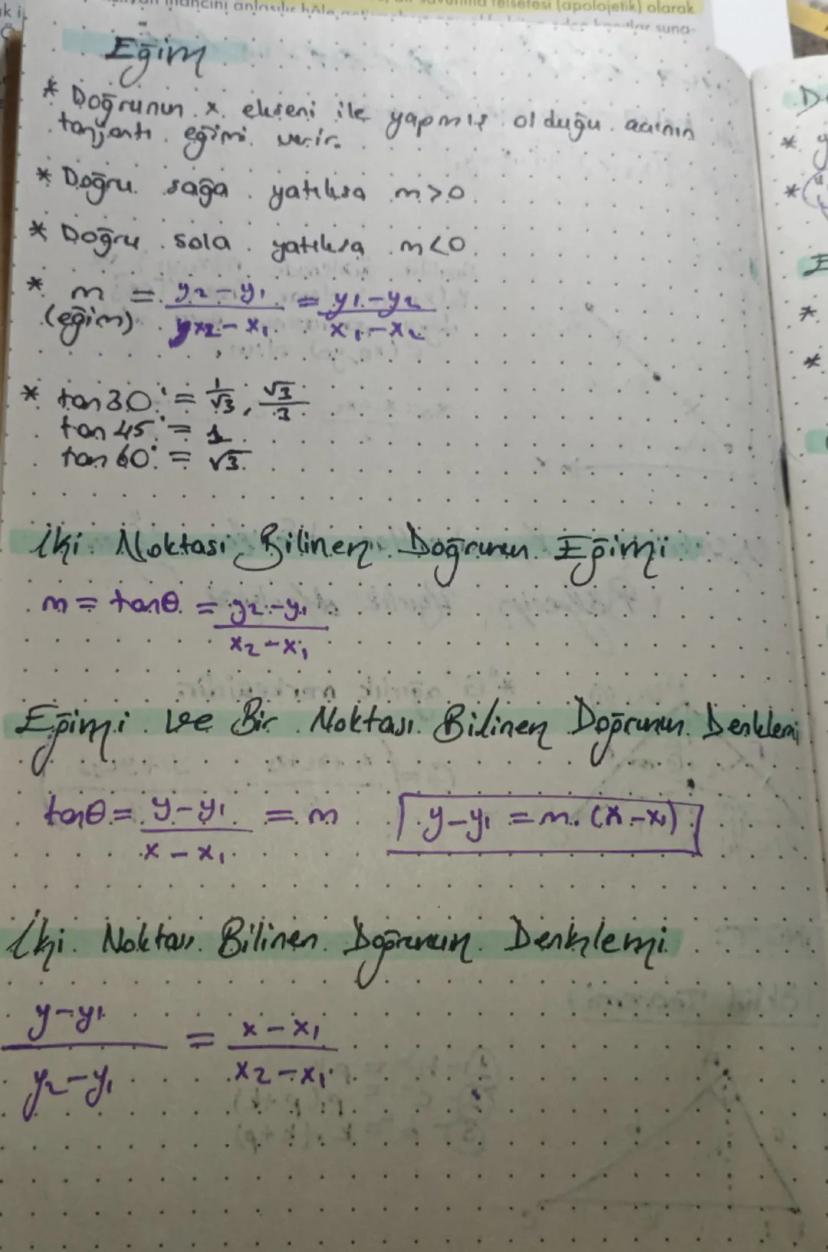 savunma felsefesi (apolojetik) olarak
Eğim
* Doğrunun x ekseni ile yapmış olduğu açının
tanjantı eğimi verir.
* Doğru sağa yatıksa m>0
* Doğru sola yatıksa m<0
* m (eğim) = y₂-y₁ / x₂-x₁ = y₁-y₂ / x₁-x₂
* tan30° = 1/√3, √3/3
tan45° = 1
tan60° = √3
İki Noktası Bilinen Doğrunun Eğimi
m = tanθ = y₂-y₁ / x₂-x₁
Eğimi ve Bir Noktası Bilinen Doğrunun Denklemi
tanθ = y-y₁ / x-x₁ = m y-y₁ = m.(x-x₁)
İki Noktası Bilinen Doğrunun Denklemi
y-y₁ / y₂-y₁ = x-x₁ / x₂-x₁